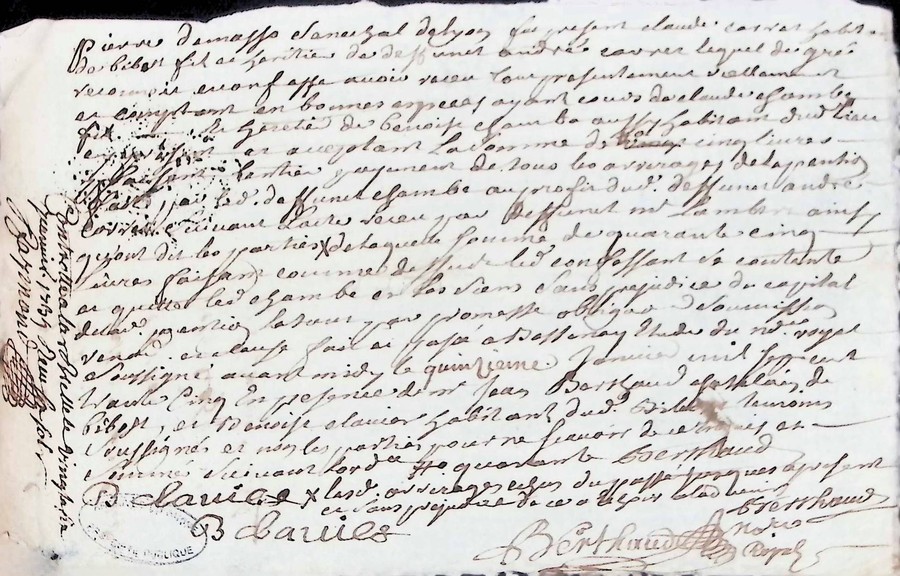 Pierre Demasso Senechal de lyon fut present claude Corret habit
de bibost fil et heritier de deffunct andre corret lequel de gre
reconnoit et confesse avoir receu tout presentement reellement
et comptant en bonnes especes ayant cours de claude chambe
fit et heretier de benoist chambe aussy habitant dud lieu
et acceptant la somme de cinq livres
faisant lentier payement de tous les arrerages de la pention
par led deffunct chambe au profit dud deffunct andre
corret suivant lacte receu par deffunct me Lambert ainsy
qu'ont dit les parties x de laquelle somme de quarante cinq
livres faisant comme dessus led confessant se contente
et quitte led chambe et les siens sans prejudice du capital
de lad pention le tout par promesse obligon soumission
renon et clause fait et passé a Bessenay Etude du nore royal
soussigné avant midy le quinzieme Janvier mil sept cent
trante cinq En presence de mr Jean Berthaud chatelain de
bibost, et Benoist clavier habitant dud Bibost temoins
soussignés et non les parties pour ne scavoir de ce enquis et
sommé suivant lord quarante Berthaud
B Clavier x lesd arrerages echus du passé jusques a present
et sans prejudice de ce a echoir a ladvenir
B Clavier Berthaud Berthaud
nore Royal
Controllé a larbresle le vingt six
janvier 1735 Reçu six sols
PUBLIQUE